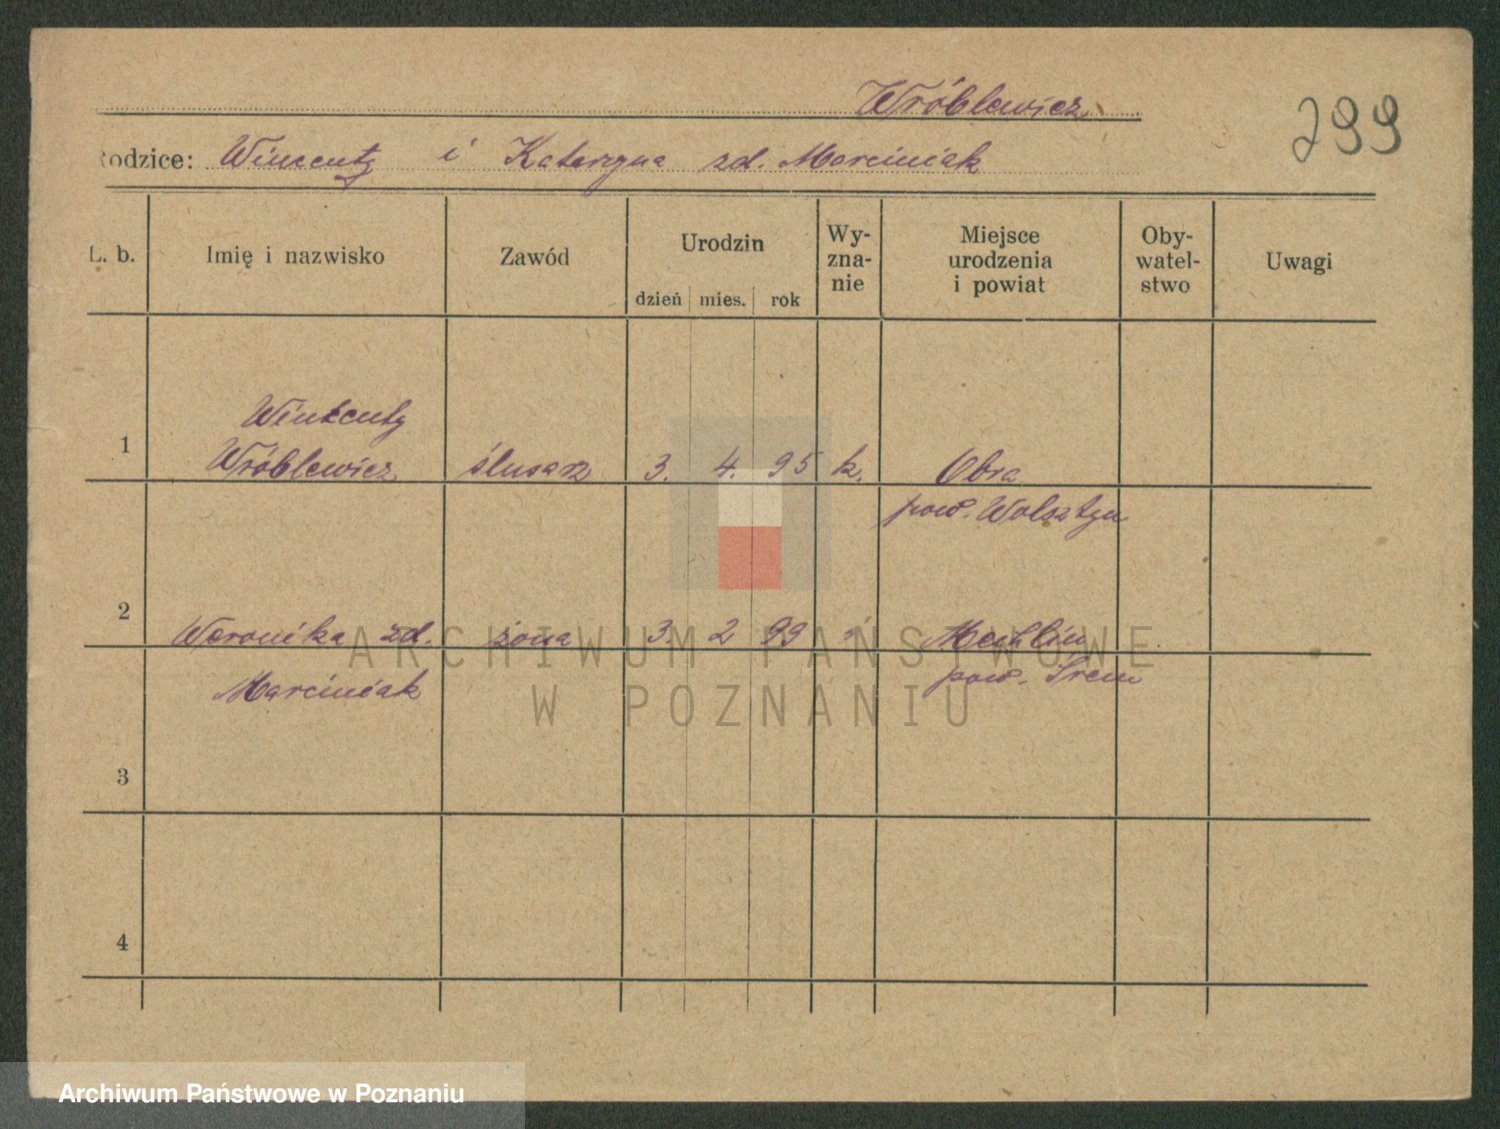 Wróblewicz
299
Rodzice: Wincenty i Katarzyna zd. Marciniak
L. b.
Imię i nazwisko
Zawód
Urodzin
dzień mies. rok
Wy-
zna-
nie
Miejsce
urodzenia
i powiat
Oby-
watel-
stwo
Uwagi
Wincenty
1 Wróblewicz ślusarz 3. 4. 95 k. Obra
pow. Wolsztyn
2 Weronika zd. żona 3. 2 99 " Mechlin
Marciniak pow. Śrem
3
4
ARCHIWUM PAŃSTWOWE
W POZNANIU
Archiwum Państwowe w Poznaniu